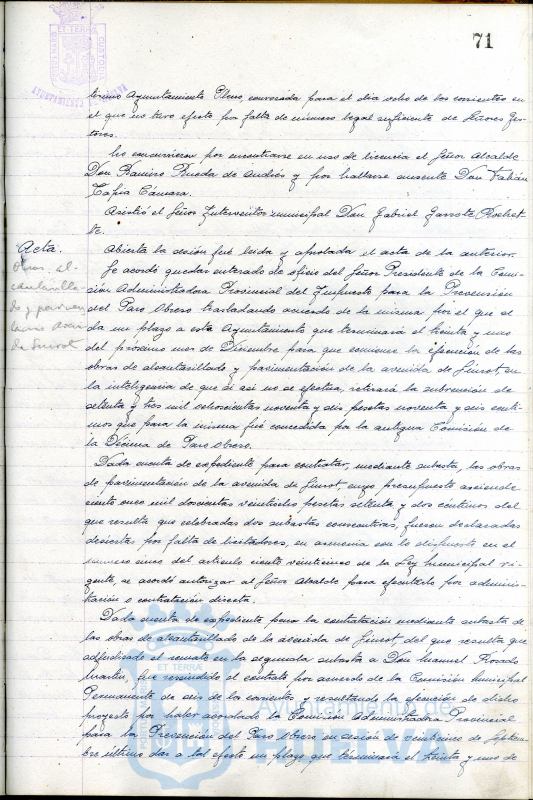 71
ET TERRA
CUSTODIA
AYUNTAMIENTO
tísimo Ayuntamiento Pleno, convocada para el día ocho de los corrientes en
el que no tuvo efecto por falta de número legal suficiente de Señores Ges-
tores.
No concurrieron por encontrarse en uso de licencia el Señor Alcalde
Don Ramiro Rueda de Andrés y por hallarse ausente Don Fabián
Tapia Cámara.
Asistió el Señor Interventor municipal Don Gabriel Garrote Rochet-
te.
Acta.
Abierta la sesión fué leida y aprobada el acta de la anterior.
Obras al-
cantarilla-
do y pavimen
de Sundt
Se acordó quedar enterado de oficio del Señor Presidente de la Comi-
sión Administradora Provincial del Impuesto para la Prevención
del Paro Obrero trasladando acuerdo de la misma por el que se
da un plazo a este Ayuntamiento que terminará el treinta y uno
del próximo mes de Diciembre para que comience la ejecución de las
obras de alcantarillado y pavimentación de la avenida de Sundt, en
la inteligencia de que si así no se efectua, retirará la subvención de
setenta y tres mil ochocientas noventa y seis pesetas noventa y seis centi-
mos que para la misma fué concedida por la antigua Comisión de
la Décima de Paro Obrero.
Dada cuenta de expediente para contratar, mediante subasta, las obras
de pavimentación de la avenida de Sundt, cuyo presupuesto asciende
ciento once mil doscientas veintiocho pesetas setenta y dos céntimos del
que resulta que celebradas dos subastas consecutivas, fueron declaradas
desiertas por falta de licitadores, en armonía con lo dispuesto en el
número cinco del artículo ciento veinticinco de la Ley municipal vi-
gente, se acordó autorizar al Señor Alcalde para ejecutarlo por adminis-
tración o contratación directa.
Dada cuenta de expediente para la contratación mediante subasta de
las obras de alcantarillado de la avenida de Sundt del que resulta que
adjudicado el remate en la segunda subasta a Don Manuel Rosado
Martín, fué rescindido el contrato por acuerdo de la Comisión Municipal
Permanente de seis de los corrientes y resultando la ejecución de dicho
proyecto por haber acordado la Comisión Administradora Provincial
para la Prevención del Paro Obrero en sesión de veintcinco de Septiem-
bre último dar a tal efecto un plazo que terminará el treinta y uno de
ET TERRA
Ayuntamiento de
HUELVA